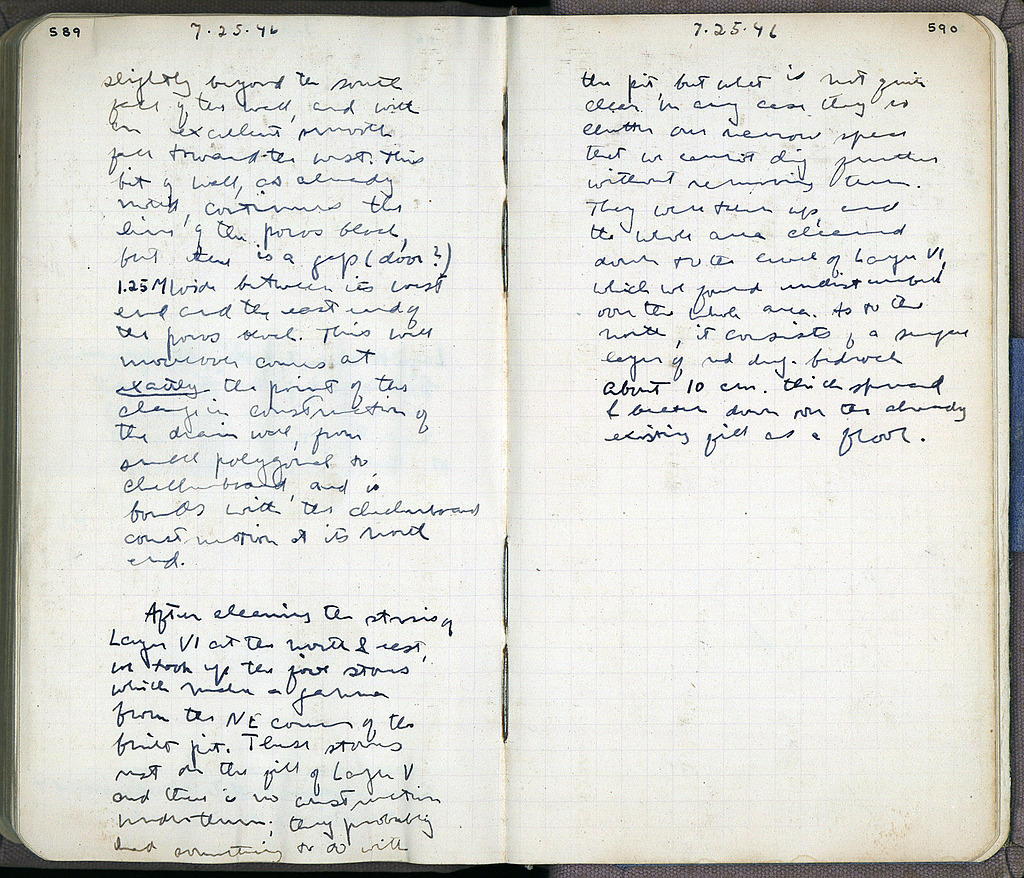 589
7·25·46
slightly beyond the south
face of the wall, and with
an excellent, smooth
face toward the west. This
bit of wall, as already
noted, continues the
line of the poros block,
but there is a gap (door?)
1.25 M wide between its west
end and the east end of
the poros block. This wall
moreover comes at
exactly the point of the
change in construction of
the drain wall, from
small polygonal to
checkerboard, and is
bonded with the checkerboard
construction at its north
end.
After cleaning the stones of
Layer VI at the north & east,
we took up the four stones
which make a gamma
from the NE corner of the
built pit. These stones
rest on the fill of Layer V
and there is no construction
under them; they probably
had something to do with
590
7·25·46
the pit, but what is not quite
clear. In any case they so
clutter our narrow space
that we cannot dig further
without removing them.
They were taken up, and
the whole area cleaned
down to the level of Layer VI,
which we found undisturbed
over the whole area. As to the
north, it consists of a single
layer of dug bedrock
about 10 cm. thick spread
& beaten down on the already
existing fill as a floor.